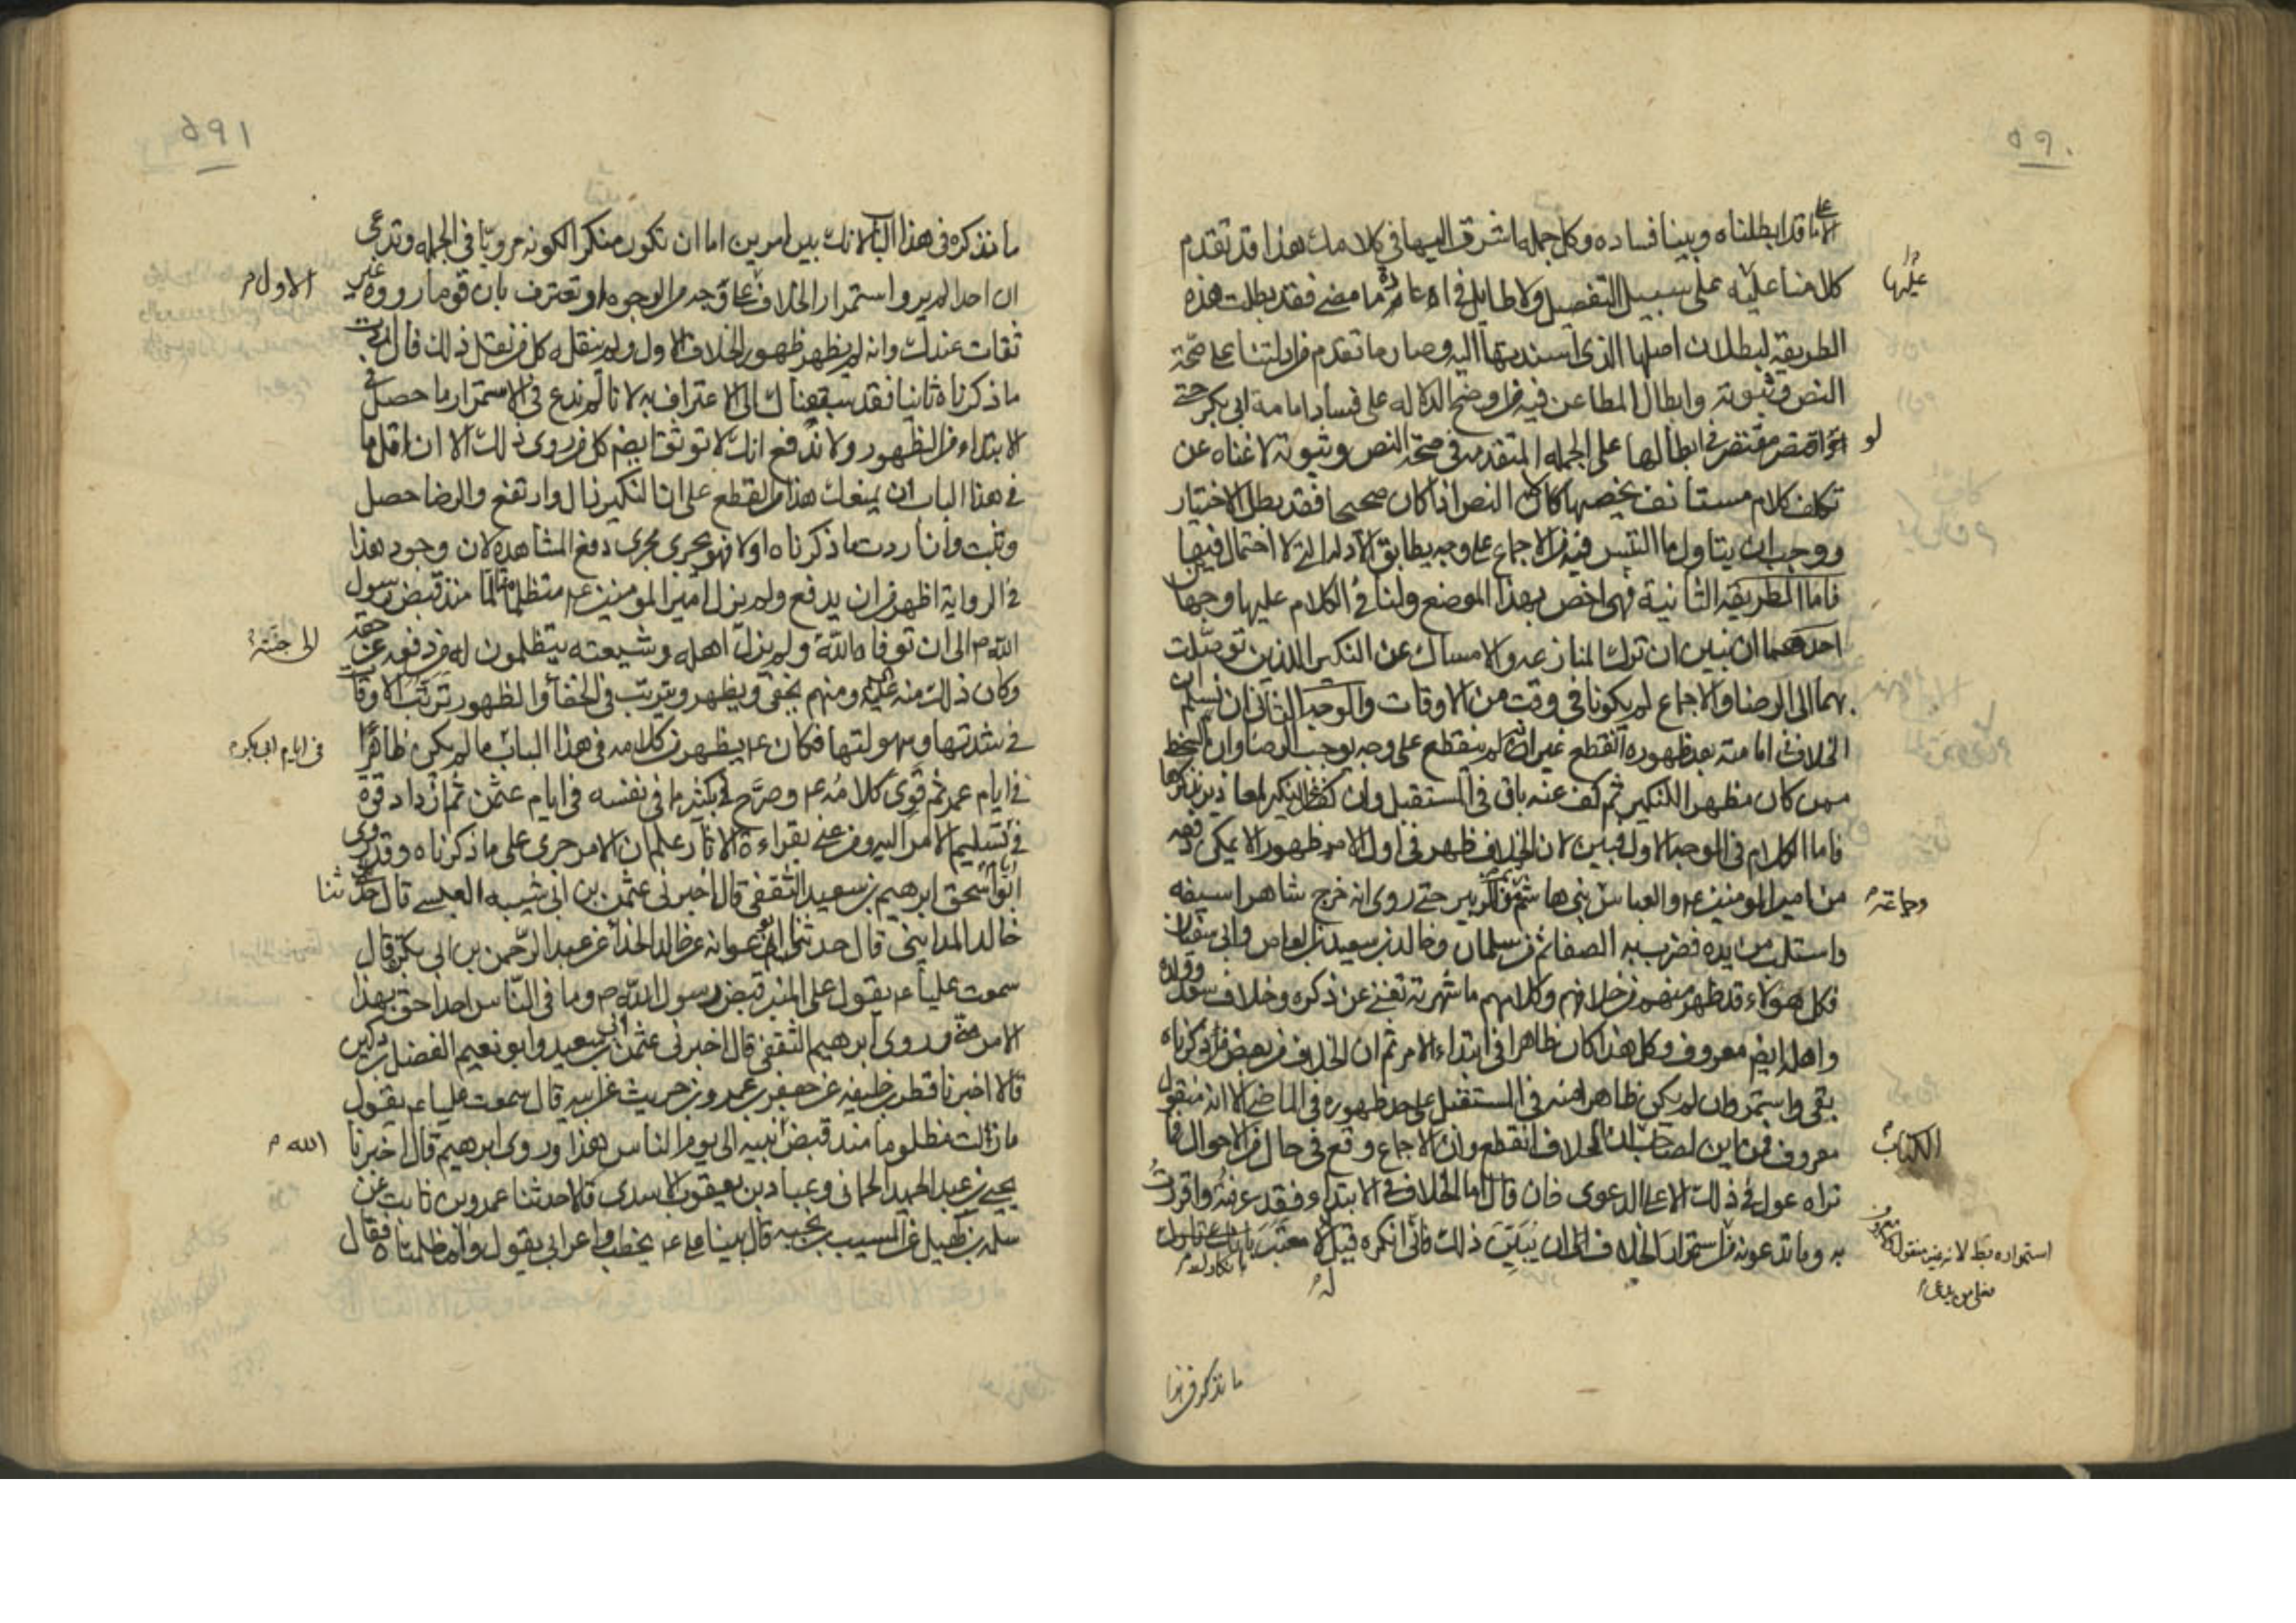 ٥٩٠
الا ما قد ابطلناه وبينا فساده وكل جملة اشرت اليها في كلامك هذا قد تقدم
كلامنا عليه على سبيل التفصيل ولا طايل في اعادة ما مضى فقد بطلت هذه
عليها
الطريقة لبطلان اصلها الذى اسندتها اليه وصار ما تقدم من ادلتنا على صحة
النص وثبوته وابطال المطاعن فيه من اوضح الدلاله على فساد امامة ابى بكر حتى
لو اقتصر مقتصر في ابطالها على الجمله المتقدمه في صحة النص وثبوته لاغناه عن
تكلف كلام مستأنف يخصها كان النص اذا كان صحيحا فقد بطل الاختيار
ووجب ان يتاول ما التبس فيه من الاجماع على وجه يطابق الادله التى لا احتمال فيها
فاما الطريقة الثانية فهى اخص بهذا الموضع ولنا في الكلام عليها وجهان
احدهما ان نبين ان ترك المنازعه والامساك عن النكير اللذين توصلت
بهما الى الرضا والاجماع لم يكونا في وقت من الاوقات والوجه الثانى ان نسلم ان
الخلاف في امامته بعد ظهوره انقطع غير انه لم ينقطع على وجه يوجب الرضا وان السخط
ممن كان مظهرا للنكير ثم كف عنه باق في المستقبل وان كف عن النكير لمعاذير نذكرها
فاما الكلام في الوجه الاول فبين لان الخلاف ظهر في اول الامر ظهورا لا يمكن دفعه
من امير المؤمنين ع والعباس بنى هاشم ثم الزبير حتى روى انه خرج شاهرا سيفه
وجماعة
واستلب من يده فضرب به الصفا ثم من سلمان وخالد بن سعيد بن العاص وابى سفيان
فكل هؤلاء قد ظهر منهم من خلافهم وكلامهم ما شهرته تغنى عن ذكره وخلاف سعد وولده
واهله ايضا معروف وكل هذا كان ظاهرا في ابتداء الامر ثم ان الخلاف من بعض من ذكرناه
بقى واستمر وان لم يكن ظاهرا منه في المستقبل على حد ظهوره في الماضى الا انه منقول
معروف فمن اين لصاحب الكتاب ان الخلاف انقطع وان الاجماع وقع في حال من الاحوال فما
نراه عول في ذلك الا على الدعوى فان قال اما الخلاف في الابتداء فقد عرفته واقررت
به وما تدعونه من استمرار الخلاف الى ان يبين ذلك فانى انكره قيل له لا معتبر بانكارك
ما نذكره في هذا
٥٩١
ما نذكره في هذا الباب لانك بين امرين اما ان تكون منكرا لكونه مرويا في الجمله وتدعى
ان احدا لم يرو استمرار الخلاف على وجه من الوجوه او تعترف بان قوما رووه غير
ثقات عندك وانه لم يظهر ظهور الخلاف الاول ولم ينقله كل من نقل ذلك فان اردت
الاول
ما ذكرناه ثانيا فقد سبقناك الى الاعتراف به لانا لم ندع في الاستمرار ما حصل في
الابتداء من الظهور ولا ندفع انك لا توثق ايضا كل من روى ذلك الا ان اقل ما
في هذا الباب ان يمنعك هذا من القطع على ان النكير زال وارتفع والرضا حصل
وثبت وان اردت ما ذكرناه اولا فهو يجرى مجرى دفع المشاهدة لان وجود هذا
في الرواية اظهر من ان يدفع ولم يزل امير المومنين ع متظلما متألما منذ قبض رسول
الله ص الى ان توفاه الله ولم يزل اهله وشيعته يتظلمون له من دفعه عن حقه
الى جنته
وكان ذلك منه ع ومنهم يخفى ويظهر ويترتب في الخفاء والظهور ترتب الاوقات
في شدتها وسهولتها فكان ع يظهر من كلامه في هذا الباب ما لم يكن ظاهرا
في ايام ابى بكر
في ايام عمر ثم قوى كلامه ع وصرح بكثير ما في نفسه في ايام عثمن ثم ازداد قوة
في ايام تسليم الامر اليه ومن عنى بقراءة الاثار علم ان الامر جرى على ما ذكرناه وقد روى
ابو اسحق ابرهيم بن سعيد الثقفى قال اخبرنى عثمن بن ابى شيبه العبسى قال حدثنا
خالد المداينى قال حدثنا ابو عوانه عن خالد الحذاء عن عبد الرحمن بن ابى بكرة قال
سمعت عليا ع يقول على المنبر قبض رسول الله ص وما في الناس احد احق بهذا
الامر منى وروى ابرهيم الثقفى قال اخبرنى عثمن بن ابى سعيد وابو نعيم الفضل بن دكين
قالا اخبرنا فطر بن خليفه عن جعفر بن عمرو بن حريث عن ابيه قال سمعت عليا ع يقول
ما زلت مظلوما منذ قبض الله نبيه الى يوم الناس هذا وروى ابرهيم قال اخبرنا
يحيى بن عبد الحميد الحمانى وعباد بن يعقوب الاسدى قالا حدثنا عمرو بن ثابت عن
سلمه بن كهيل عن المسيب بن نجبه قال بينا على ع يخطب واعرابى يقول وامظلمتاه فقال